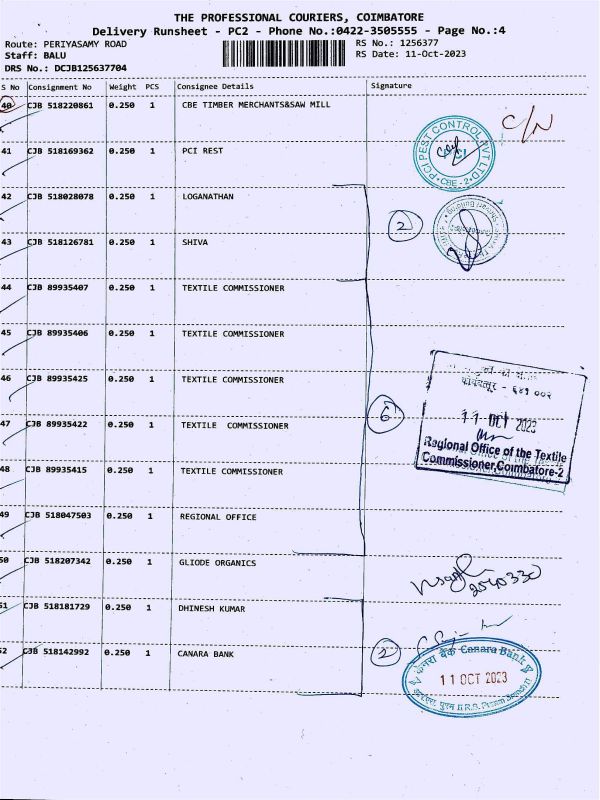 THE PROFESSIONAL COURIERS, COIMBATORE
Delivery Runsheet - PC2 - Phone No.:0422-3505555 - Page No.:4
Route: PERIYASAMY ROAD
Staff: BALU
DRS No.: DCJB125637704
RS No.: 1256377
RS Date: 11-Oct-2023
S No Consignment No Weight PCS Consignee Details Signature
40 CJB 518220861 0.250 1 CBE TIMBER MERCHANTS&SAW MILL
C/N
PCI PEST CONTROL PVT LTD
CBE - 2
41 CJB 518169362 0.250 1 PCI REST
42 CJB 518028078 0.250 1 LOGANATHAN
2
43 CJB 518126781 0.250 1 SHIVA
44 CJB 89935407 0.250 1 TEXTILE COMMISSIONER
45 CJB 89935406 0.250 1 TEXTILE COMMISSIONER
46 CJB 89935425 0.250 1 TEXTILE COMMISSIONER
कोयंबत्तूर - ६४१ ००२
6
11 OCT 2023
47 CJB 89935422 0.250 1 TEXTILE COMMISSIONER
Regional Office of the Textile
Commissioner,Coimbatore-2
48 CJB 89935415 0.250 1 TEXTILE COMMISSIONER
49 CJB 518047503 0.250 1 REGIONAL OFFICE
50 CJB 518207342 0.250 1 GLIODE ORGANICS
2540330
51 CJB 518181729 0.250 1 DHINESH KUMAR
52 CJB 518142992 0.250 1 CANARA BANK
2
केनरा बैंक Canara Bank
11 OCT 2023